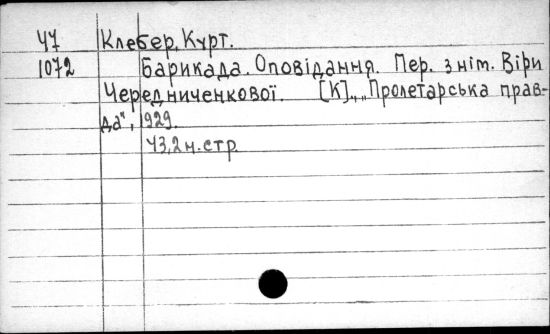 Ч7 Клебер, Курт.
1072 Барикада. Оповідання. Пер. з нім. Віри
Чередниченкової. [К]., „Пролетарська прав-
да", 1929.
43,2 н. стр.